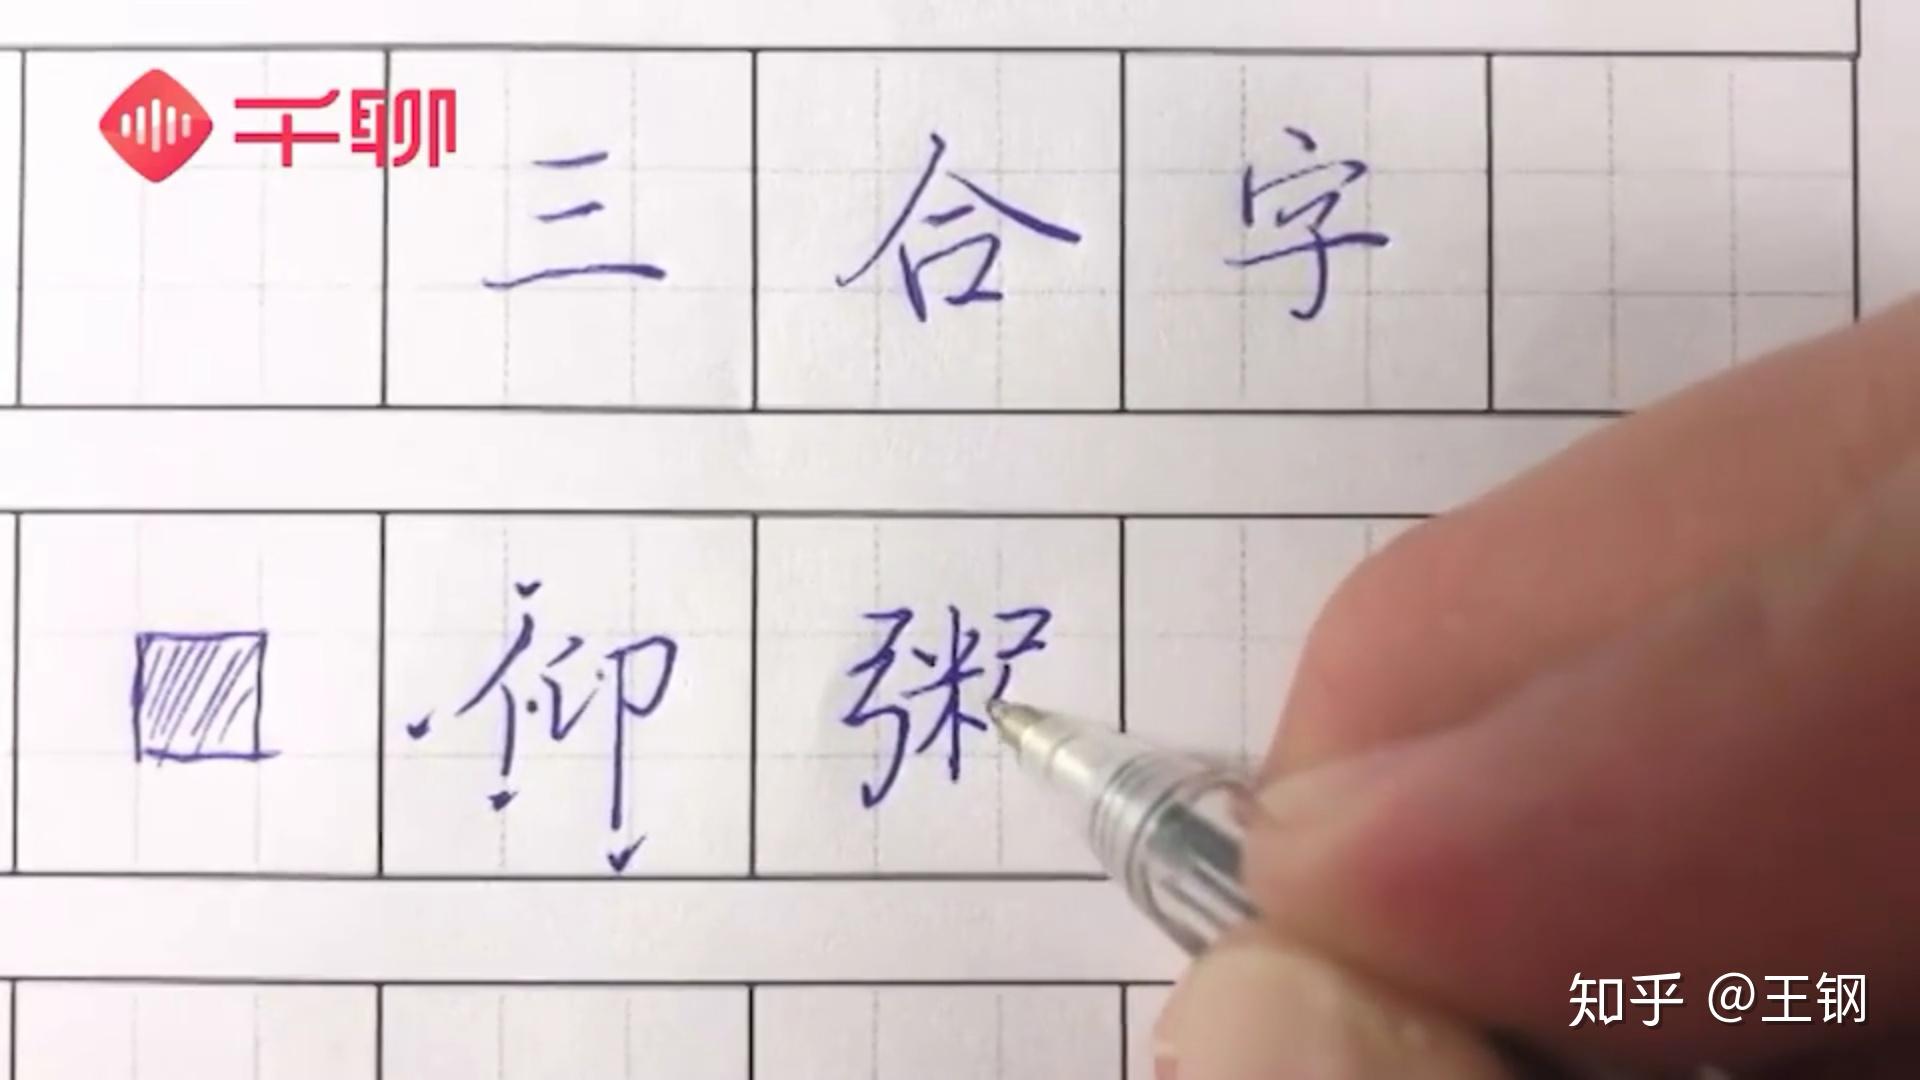 千聊
三合字
仰粥
知乎 @王钢